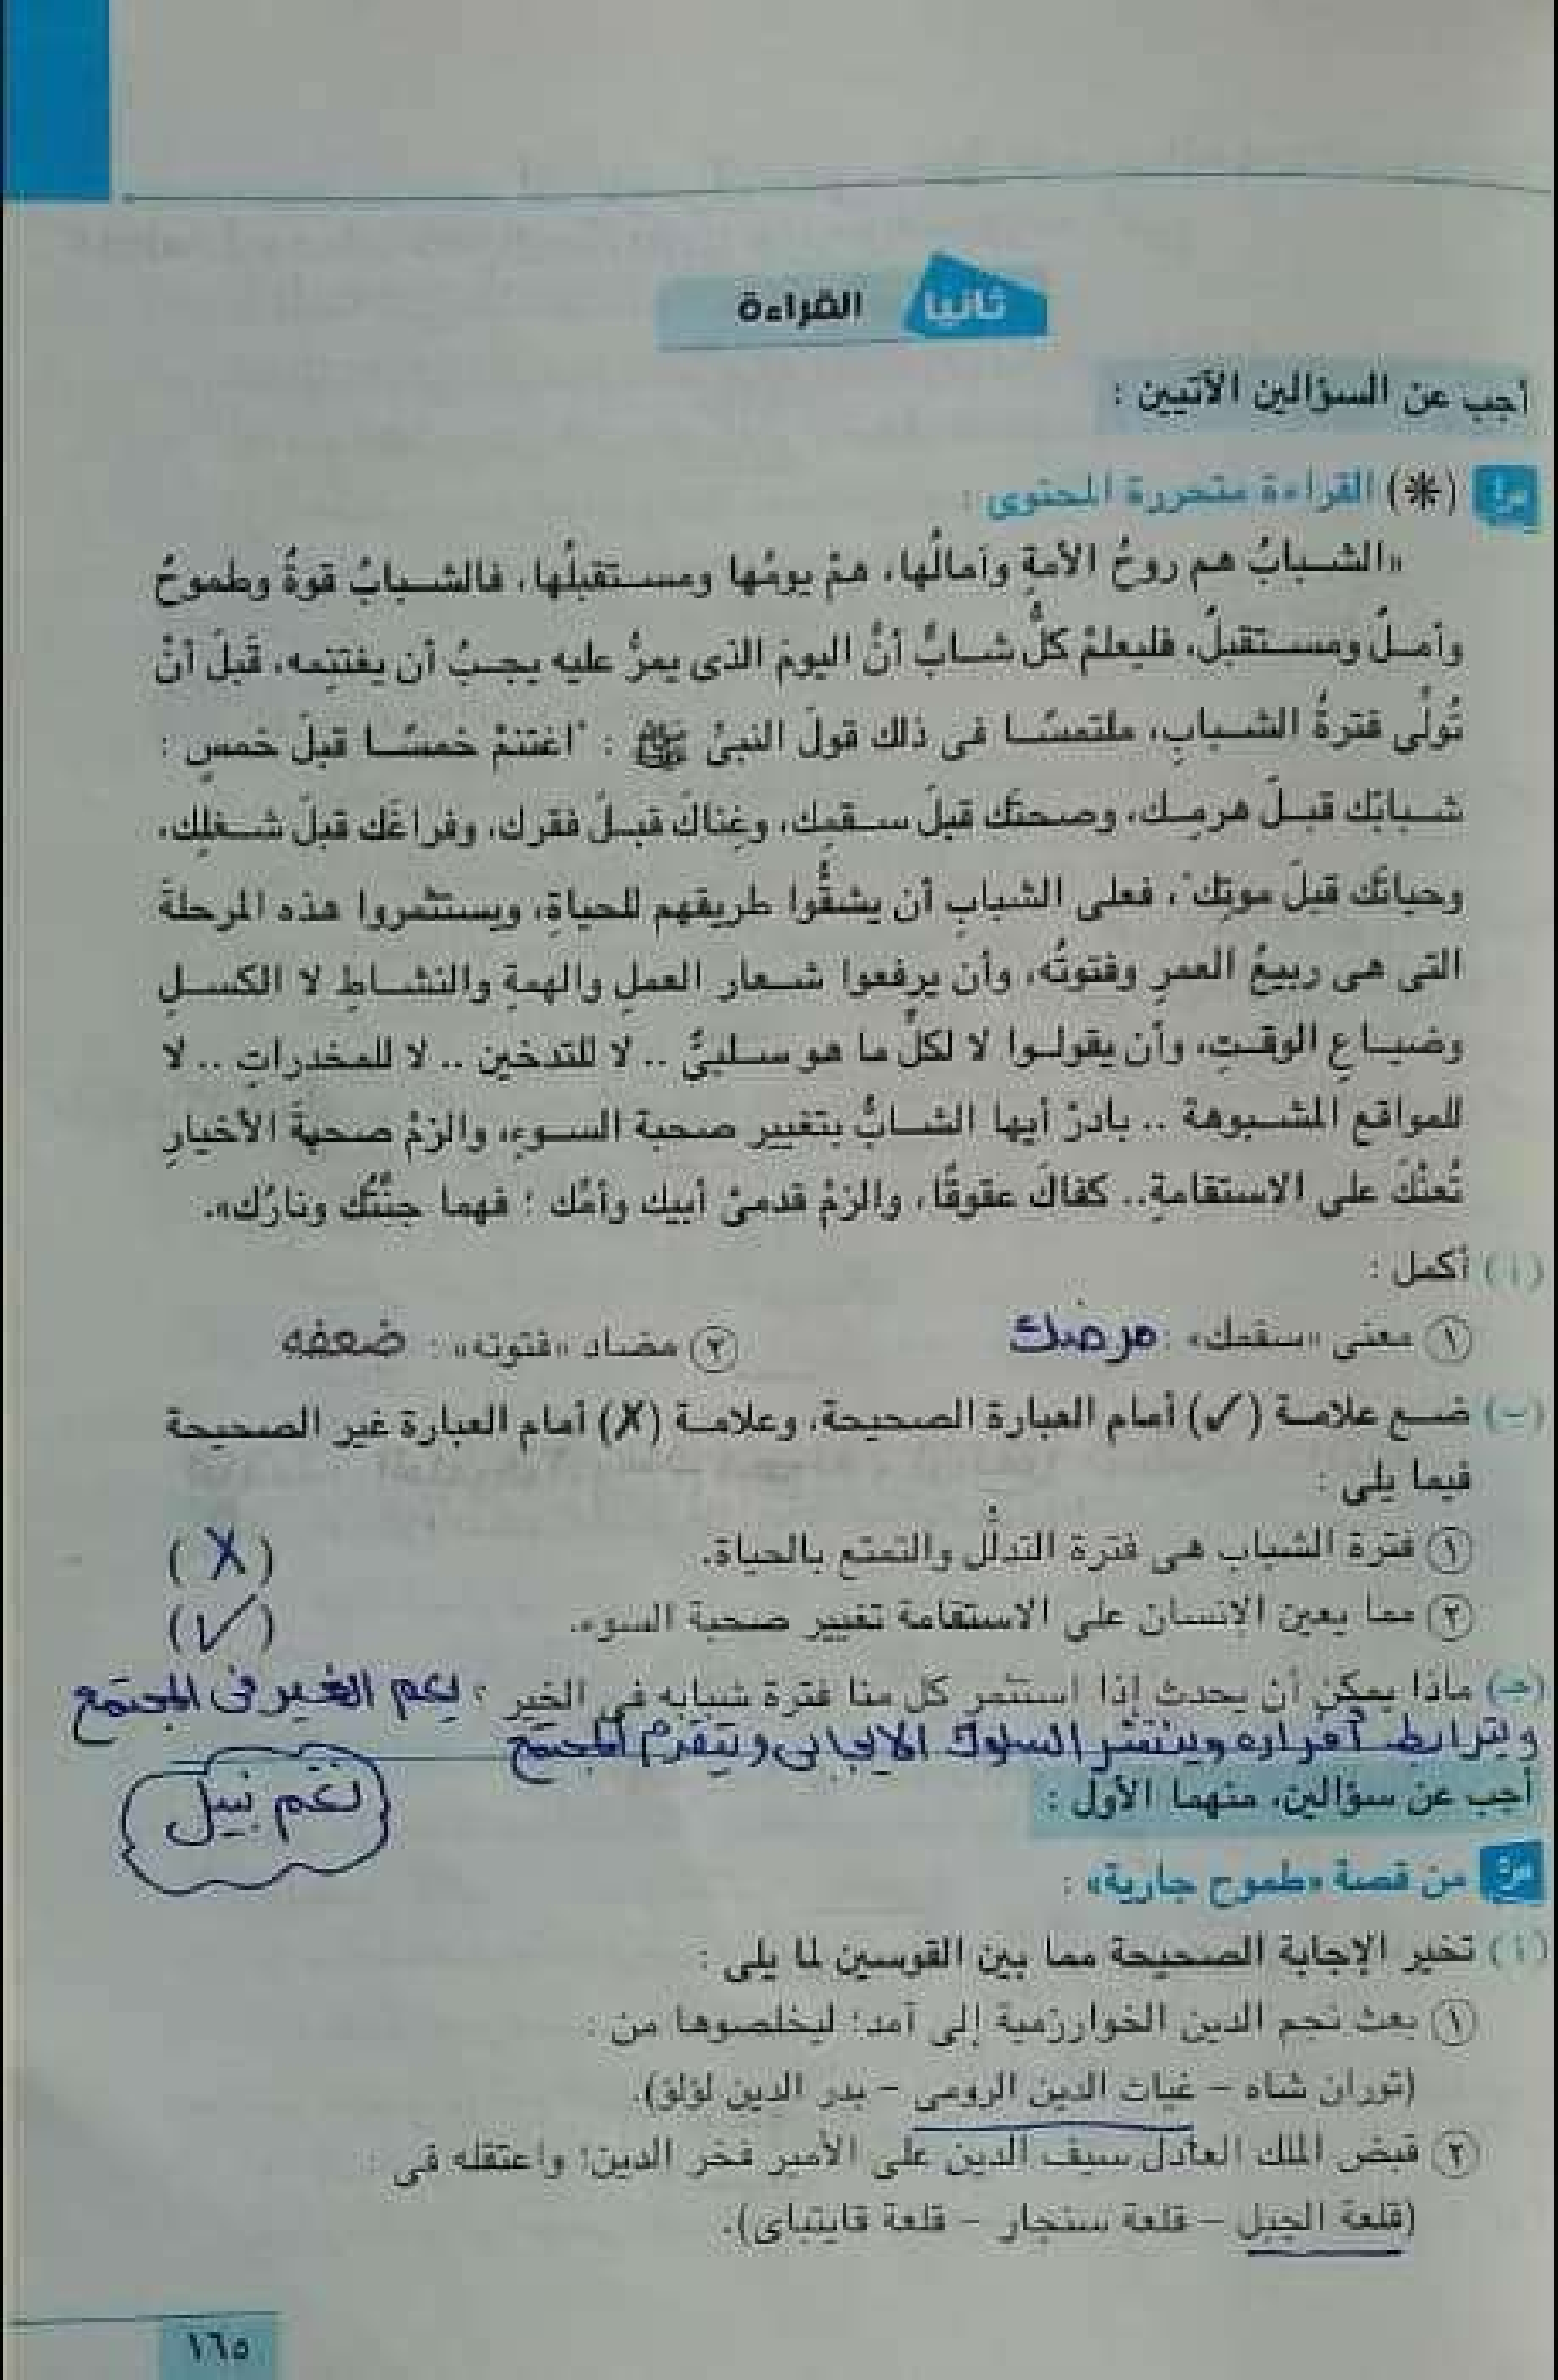 ثانيا القراءة
أجب عن السؤالين الآتيين :
س٤ (*) القراءة متحررة المحتوى :
«الشبابُ هم روحُ الأمةِ وآمالُها، همْ يومُها ومستقبلُها، فالشبابُ قوةٌ وطموحٌ
وأملٌ ومستقبلٌ، فليعلمْ كلُّ شابٍّ أنَّ اليومَ الذى يمرُّ عليه يجبُ أن يغتنِمه، قَبلَ أنْ
تُولِّى فترةُ الشبابِ، ملتمسًا فى ذلك قولَ النبىِّ ﷺ : "اغتنمْ خمسًا قبلَ خمسٍ :
شبابَك قبلَ هرمِك، وصحتَك قبلَ سقمِك، وغِناكَ قبلَ فقرك، وفراغَك قبلَ شغلِك،
وحياتَك قبلَ موتِك"، فعلى الشبابِ أن يشقُّوا طريقهم للحياةِ، ويستثمروا هذه المرحلةَ
التى هى ربيعُ العمرِ وفتوتُه، وأن يرفعوا شعار العملِ والهمةِ والنشاطِ لا الكسلِ
وضياعِ الوقتِ، وأن يقولوا لا لكلِّ ما هو سلبىٌّ .. لا للتدخين .. لا للمخدراتِ .. لا
للمواقع المشبوهة .. بادرْ أيها الشابُّ بتغيير صحبة السوءِ، والزمْ صحبةَ الأخيارِ
تُعنْكَ على الاستقامةِ.. كفاكَ عقوقًا، والزمْ قدمىْ أبيك وأمِّك ؛ فهما جنَّتُك ونارُك».
(أ) أكمل :
١ معنى «سقمك» : مرضك ٢ مضاد «فتوته» : ضعفه
(ب) ضع علامة (✓) أمام العبارة الصحيحة، وعلامة (X) أمام العبارة غير الصحيحة
فيما يلى :
١ فترة الشباب هى فترة التدلُّل والتمتع بالحياة. (X)
٢ مما يعين الإنسان على الاستقامة تغيير صحبة السوء. (✓)
(جـ) ماذا يمكن أن يحدث إذا استثمر كل منا فترة شبابه فى الخير ؟ يعم الخير فى المجتمع
ويترابط أفراده وينتشر السلوك الإيجابى ويتقدم المجتمع
نغم نبيل
أجب عن سؤالين، منهما الأول :
من قصة «طموح جارية» :
(أ) تخير الإجابة الصحيحة مما بين القوسين لما يلى :
١ بعث نجم الدين الخوارزمية إلى آمد؛ ليخلصوها من :
(توران شاه – غياث الدين الرومى – بدر الدين لؤلؤ).
٢ قبض الملك العادل سيف الدين على الأمير فخر الدين؛ واعتقله فى :
(قلعة الجبل – قلعة سنجار – قلعة قايتباى).
١٦٥